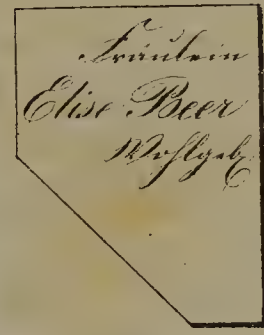 Fräulein
Elise Beer
Wohlgeb.